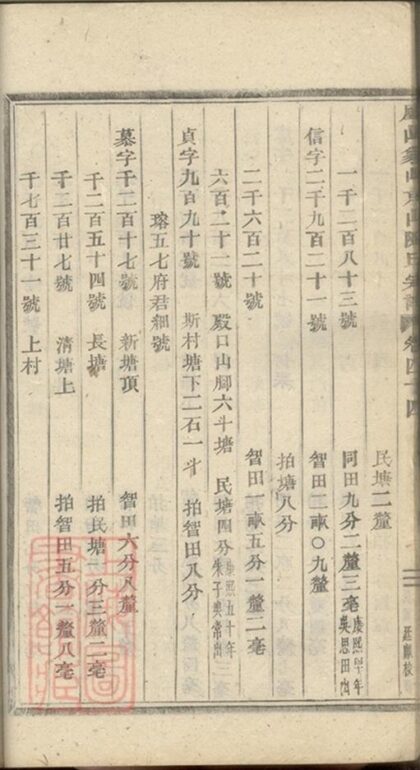 卷四
四
民塘二釐
一千二百八十三號 同田九分二釐三毫
吳思田出
信字二千九百二十一號 智田二畝〇九釐
拍塘八分
二千六百二十號 智田一畝五分一釐二毫
六百二十一號 殿口山腳六斗塘 民塘四分 康熙五十年
朱子美常出
貞字九百九十號 斯村塘下二石一斗 拍智田八分
瑢五七府君細號
慕字千二百十七號 新塘頂 智田六分八釐
千二百五十四號 長塘 拍民塘一分三釐二毫
千二百廿七號 清塘上 拍智田五分一釐八毫
千七百三十一號 上村